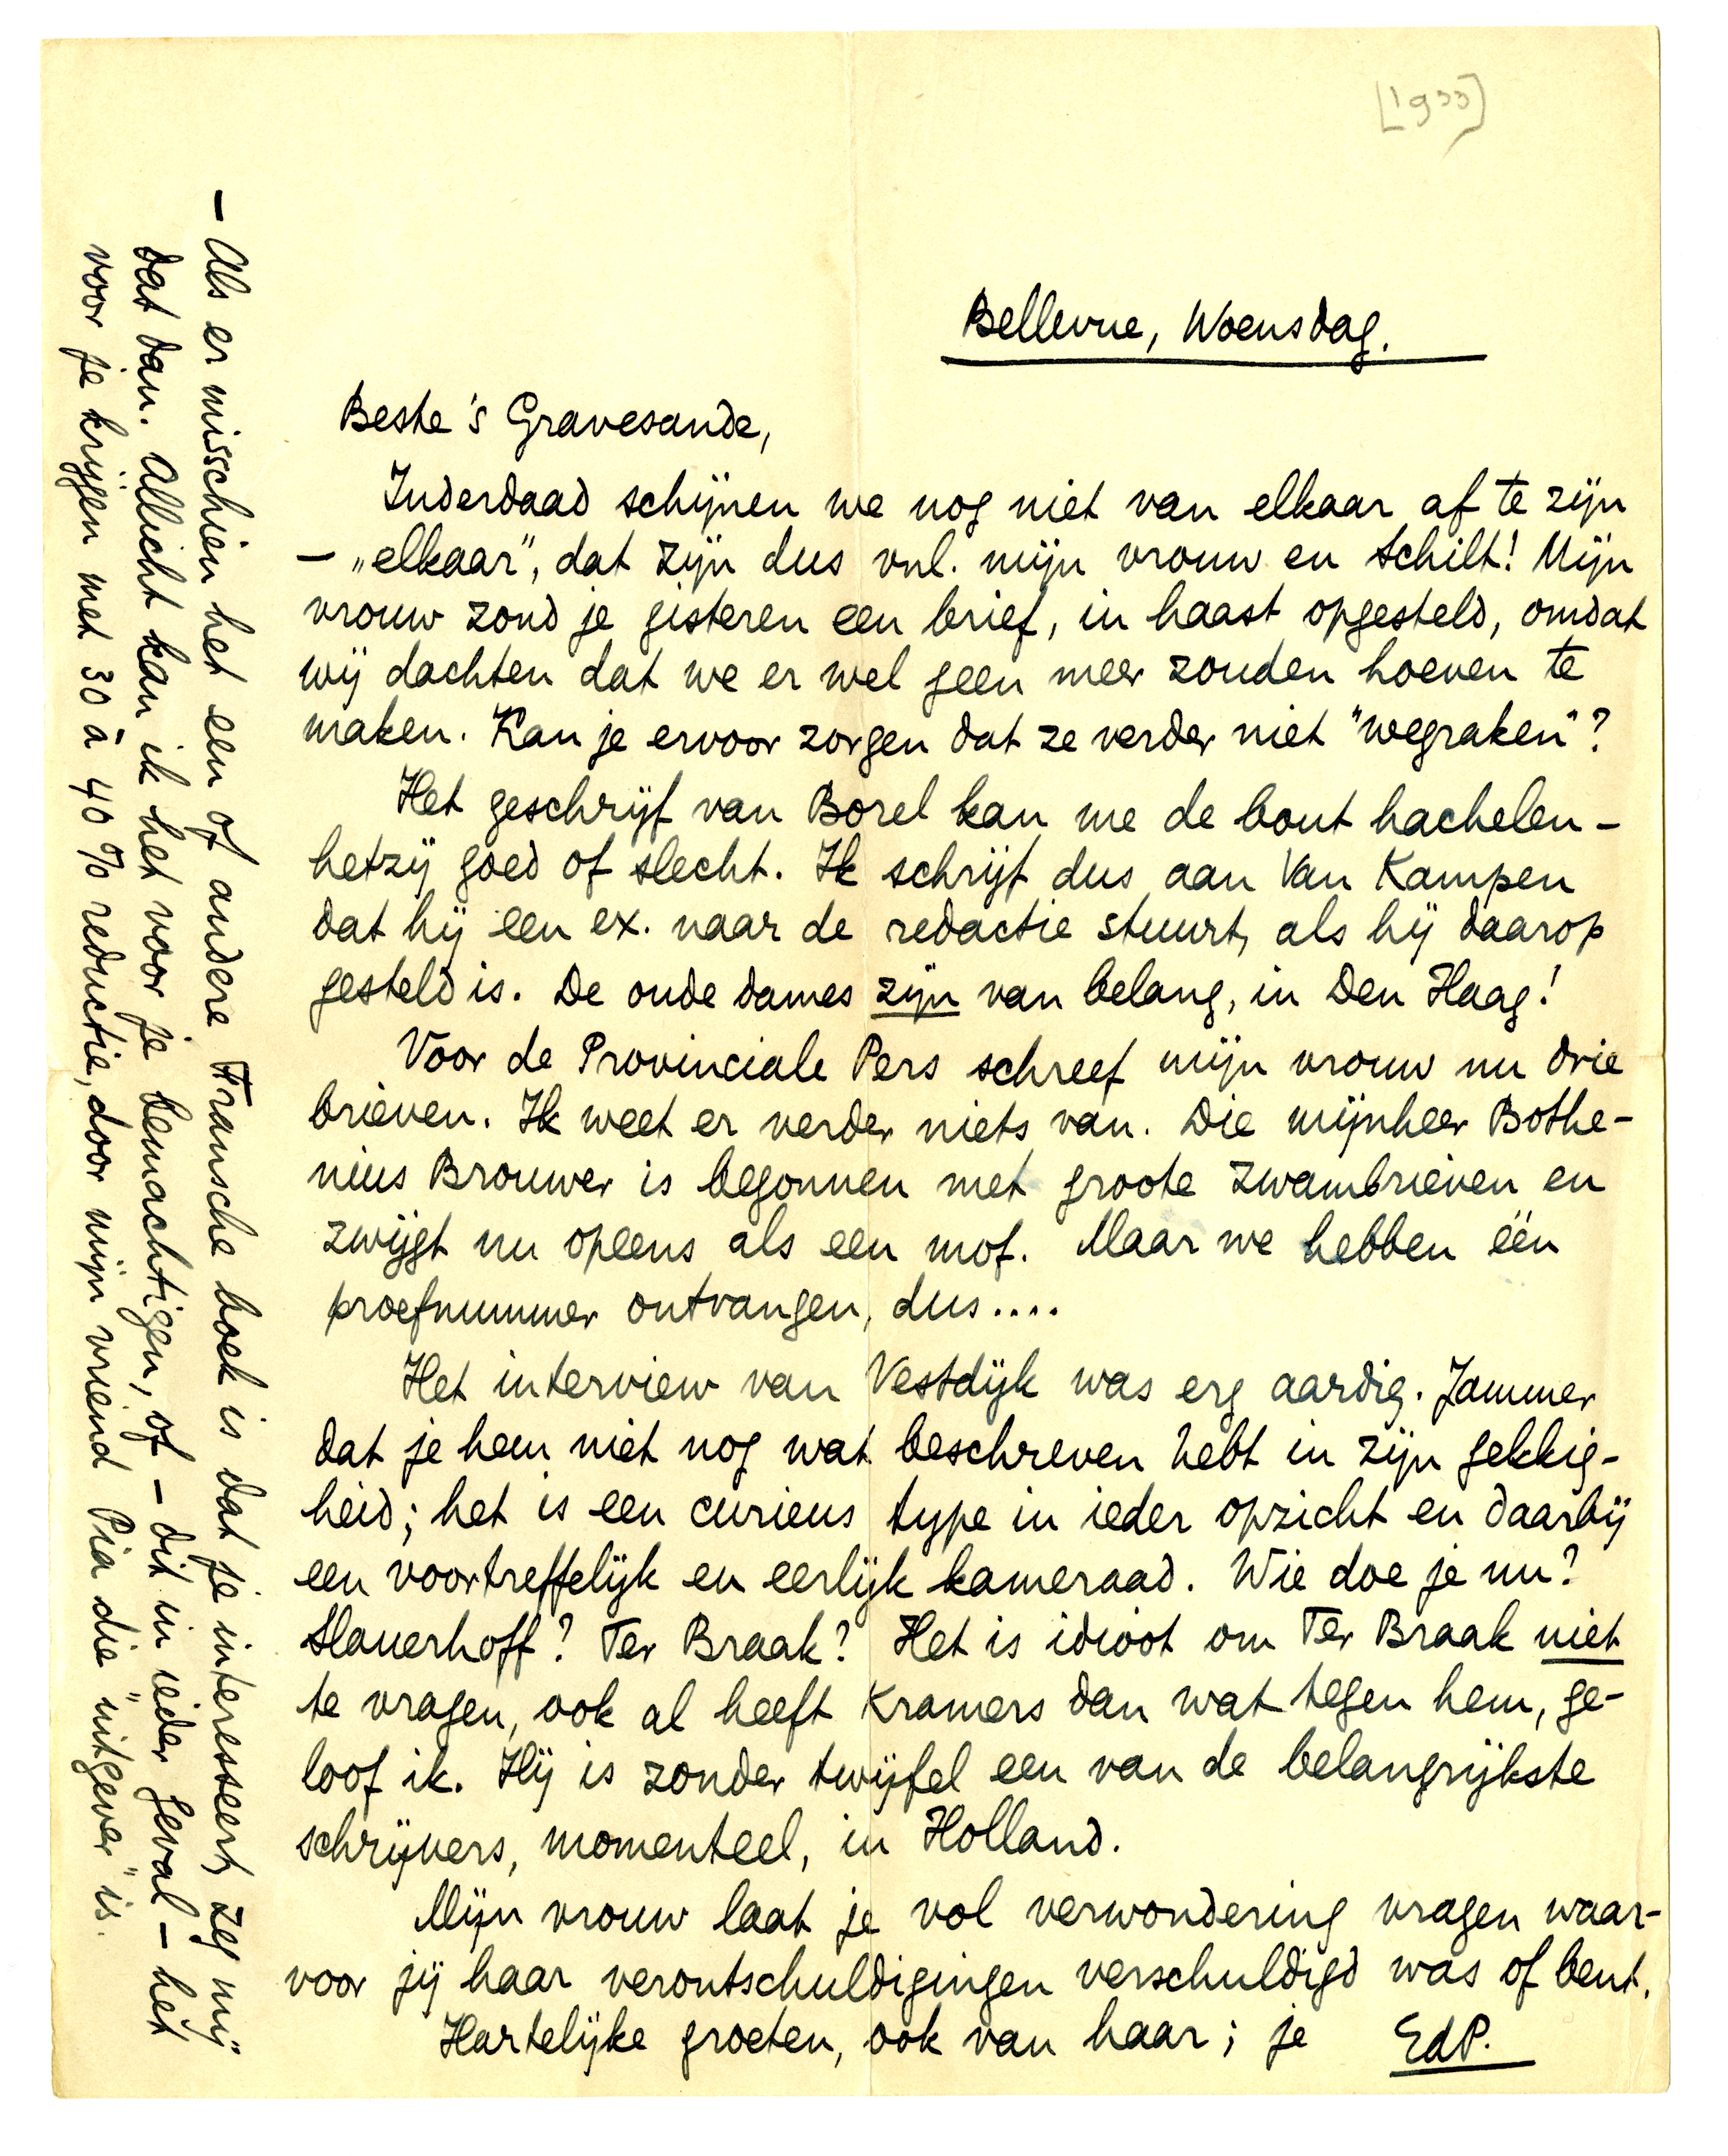 [1933]
Bellevue, Woensdag.
Beste 's Gravesande,
Inderdaad schijnen we nog niet van elkaar af te zijn
— „elkaar", dat zijn dus vnl. mijn vrouw en Schilt! Mijn
vrouw zond je gisteren een brief, in haast opgesteld, omdat
wij dachten dat we er wel geen meer zouden hoeven te
maken. Kan je ervoor zorgen dat ze verder niet "wegraken"?
Het geschrijf van Borel kan me de bout hachelen –
hetzij goed of slecht. Ik schrijf dus aan Van Kampen
dat hij een ex. naar de redactie stuurt, als hij daarop
gesteld is. De oude dames zijn van belang, in Den Haag!
Voor de Provinciale Pers schreef mijn vrouw nu drie
brieven. Ik weet er verder niets van. Die mijnheer Bothe-
nius Brouwer is begonnen met groote zwambrieven en
zwijgt nu opeens als een mof. Maar we hebben één
proefnummer ontvangen, dus....
Het interview van Vestdijk was erg aardig. Jammer
dat je hem niet nog wat beschreven hebt in zijn gekkig-
heid; het is een curieus type in ieder opzicht en daarbij
een voortreffelijk en eerlijk kameraad. Wie doe je nu?
Slauerhoff? Ter Braak? Het is idioot om Ter Braak niet
te vragen, ook al heeft Kramers dan wat tegen hem, ge-
loof ik. Hij is zonder twijfel een van de belangrijkste
schrijvers, momenteel, in Holland.
Mijn vrouw laat je vol verwondering vragen waar-
voor jij haar verontschuldigingen verschuldigd was of bent.
Hartelijke groeten, ook van haar; je EdP.
— Als er misschien het een of andere Fransche boek is dat je interesseert, zeg mij
dat dan. Allicht kan ik het voor je bemachtigen, of – dit in ieder geval – het
voor je krijgen met 30 à 40 % reductie, door mijn vriend Pia die "uitgever" is.